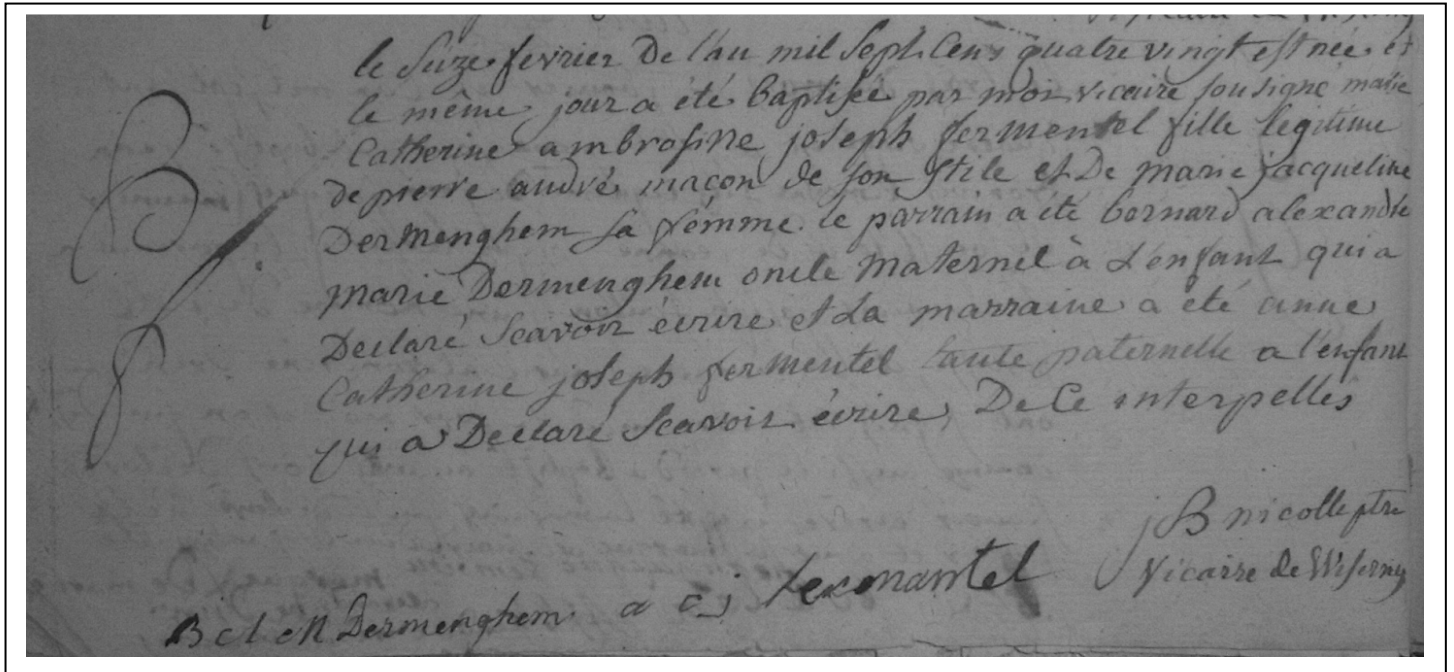 le seize fevrier de l'an mil sept cens quatre vingt est née et
le même jour a été baptisée par moi vicaire sousigné marie
Catherine ambrosine joseph fermentel fille legitime
de pierre andré macon de son stile et De marie jacqueline
Dermenghem sa femme le parrain a été bernard alexandre
marie Dermenghem oncle maternel à L'enfant qui a
Declaré scavoir écrire et La marraine a été anne
Catherine joseph fermentel tante paternelle a l'enfant
qui a Declaré scavoir écrire, De Ce interpellés
B
jB nicolle ptre
vicaire de Wisernes
Dermenghem a c j fermantel